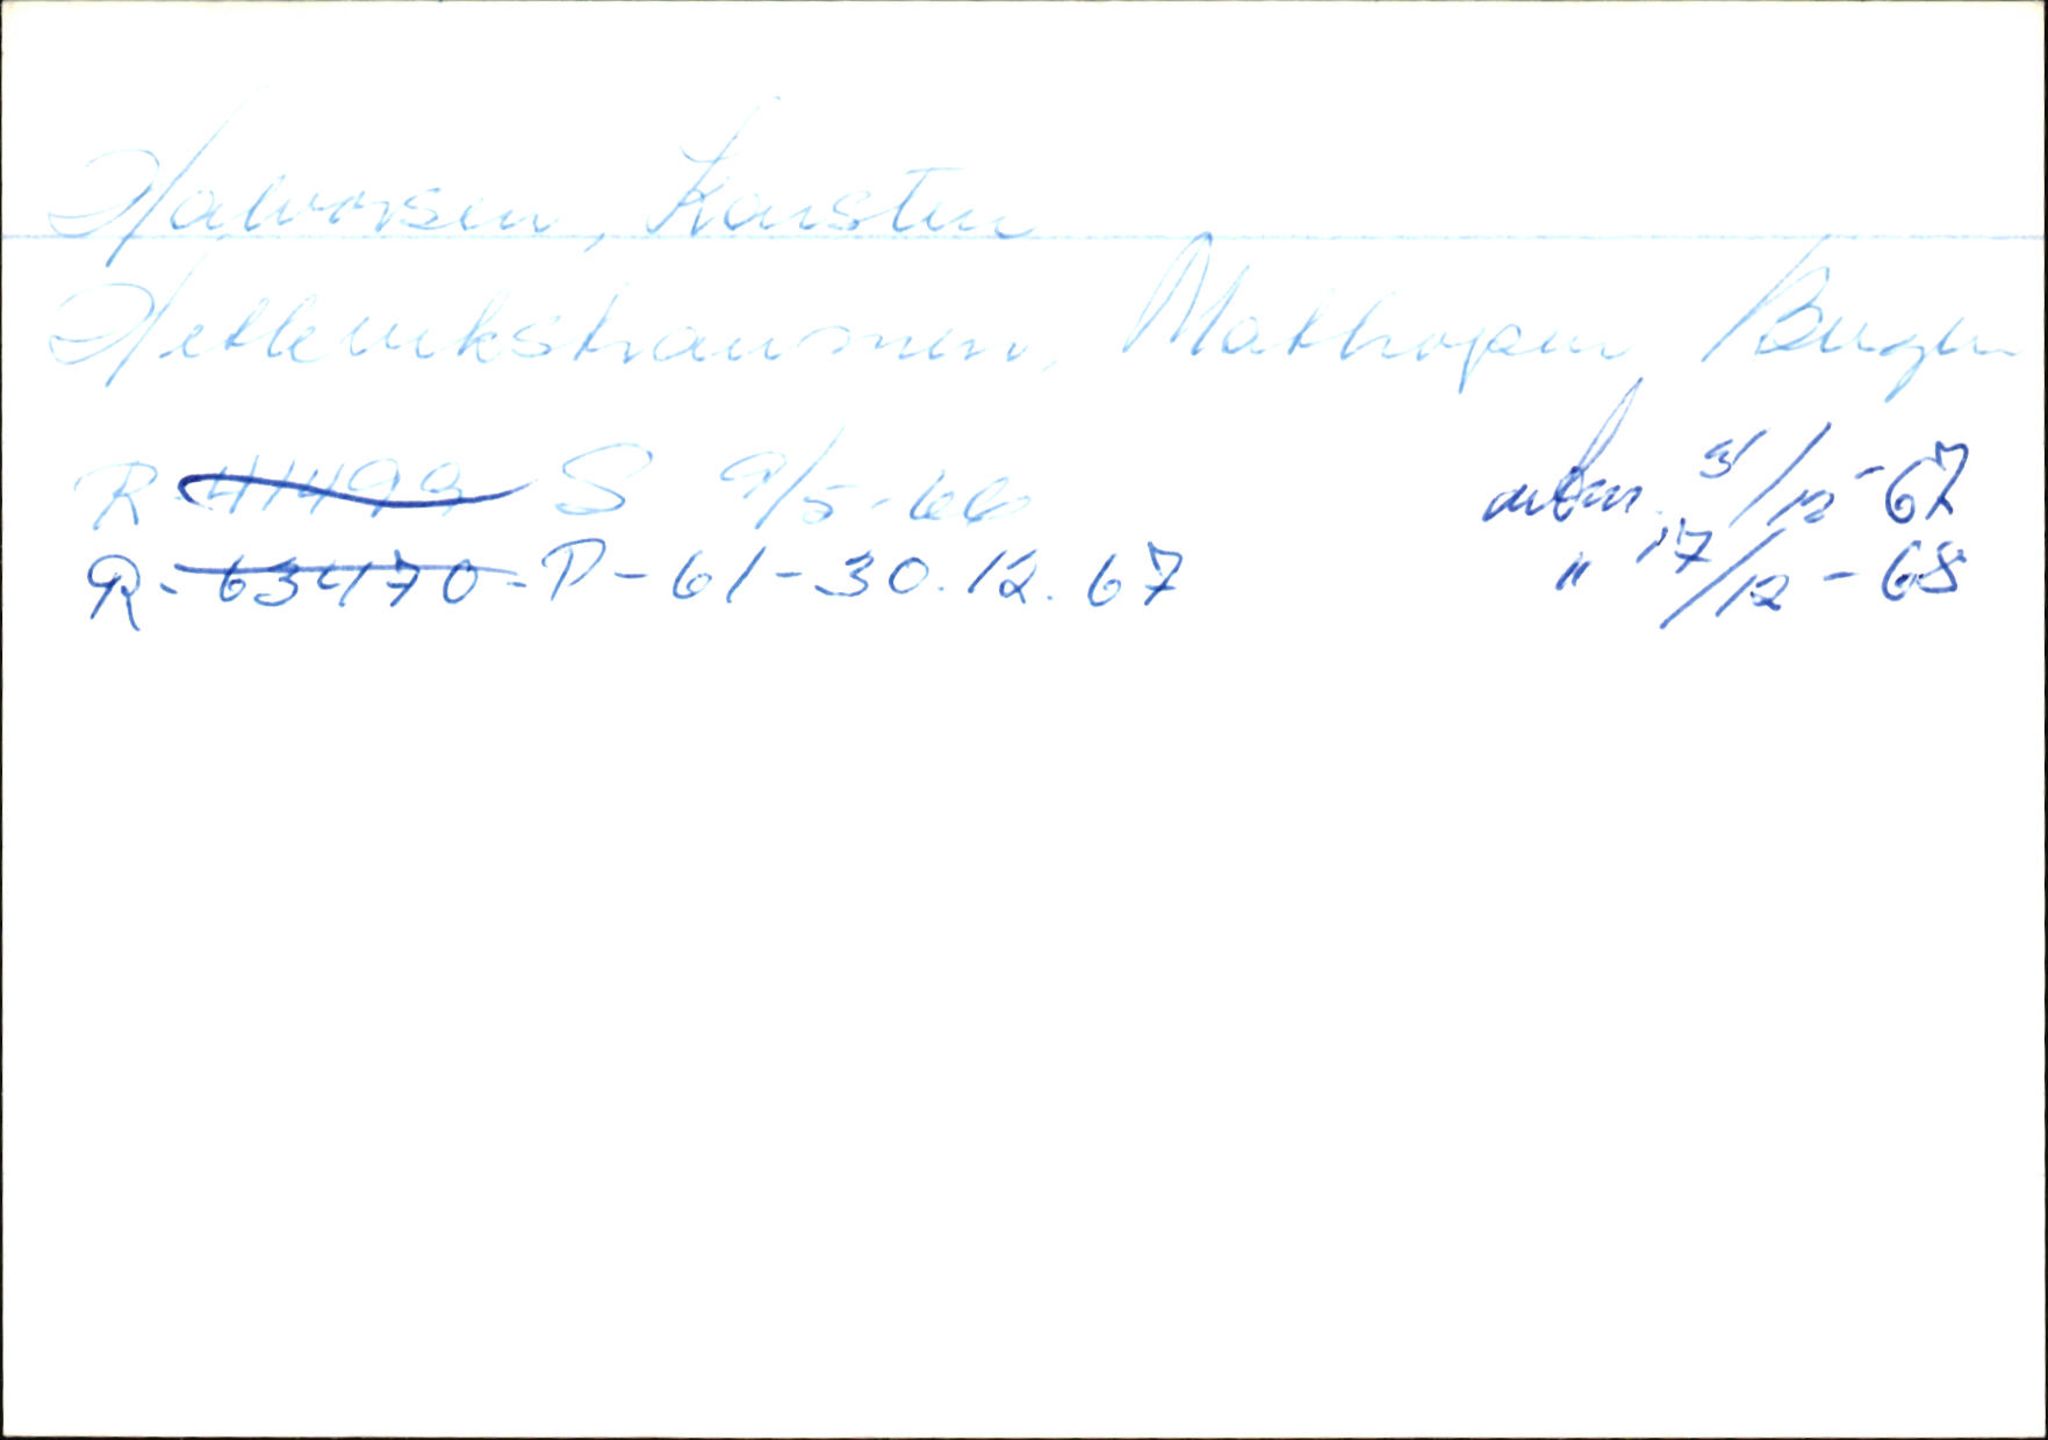 Halvorsen, Karsten
Hetlevikstraumen, Mathopen, Bergen
R-41499 S 9/5-66 avbm. 5/12-67
R-63470-P-61-30.12.67 " 17/12-68